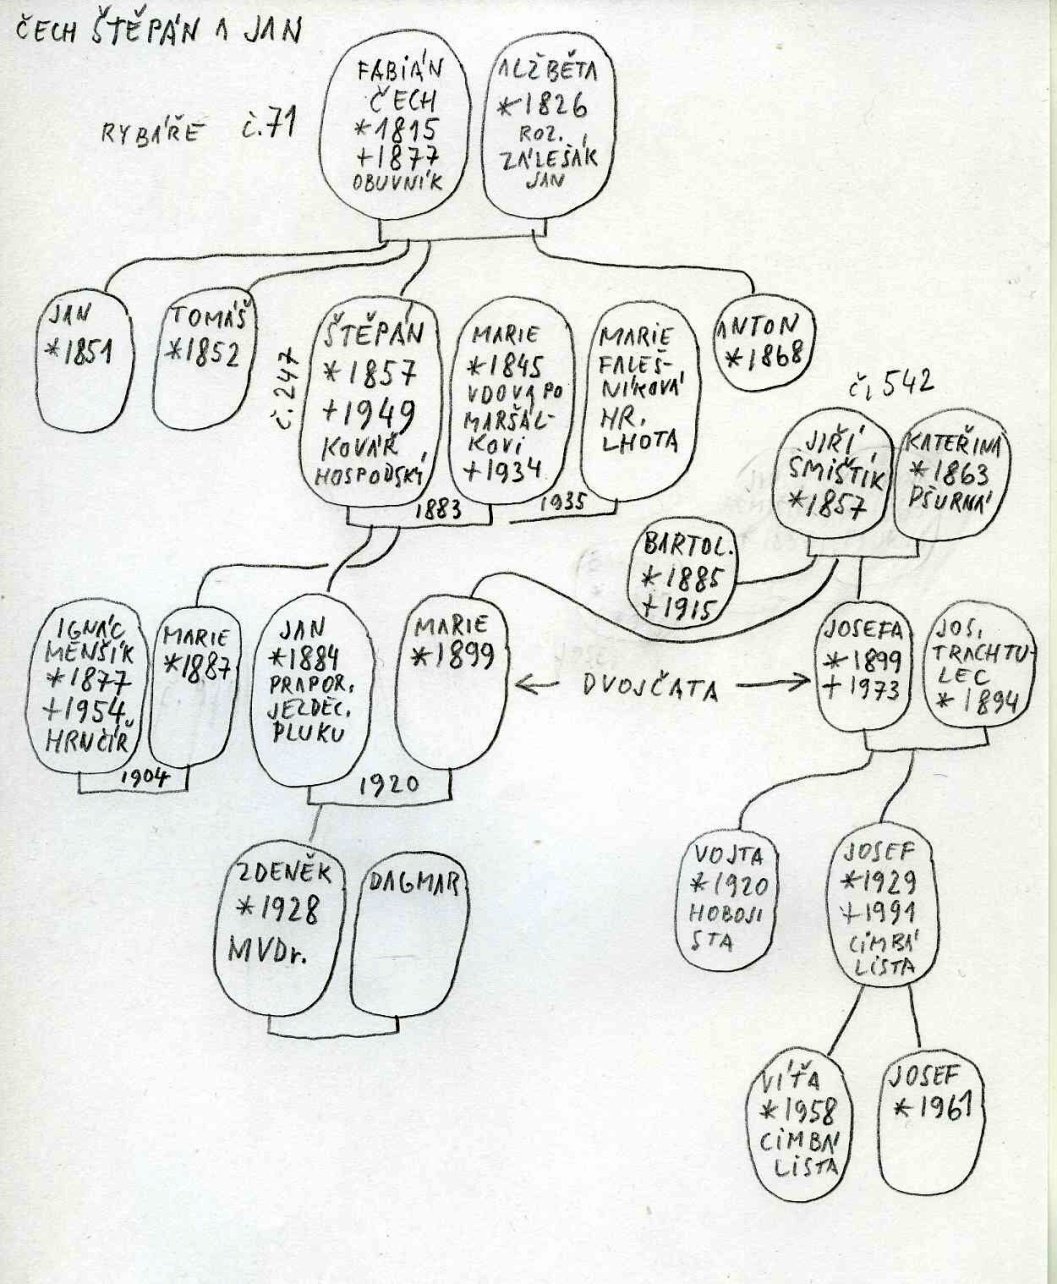 ČECH ŠTĚPÁN A JAN
RYBÁŘE č.71
FABIÁN
ČECH
*1815
+1877
OBUVNÍK
ALŽBĚTA
*1826
ROZ.
ZÁLEŠÁK
JAN
JAN
*1851
TOMÁŠ
*1852
č.247
ŠTĚPÁN
*1857
+1949
KOVÁŘ,
HOSPODSKÝ
MARIE
*1845
VDOVA PO
MARŠÁL-
KOVI
+1934
MARIE
FALEŠ-
NÍKOVÁ
HR.
LHOTA
ANTON
*1868
1883
1935
č.542
JIŘÍ
SMIŠTÍK
*1857
KATEŘINA
*1863
PŠURNÁ
BARTOL.
*1885
+1915
IGNÁC
MENŠÍK
*1877
+1954
HRNČÍŘ
MARIE
*1887
JAN
*1884
PRAPOR.
JEZDEC.
PLUKU
MARIE
*1899
← DVOJČATA →
JOSEFA
*1899
+1973
JOS.
TRACHTU-
LEC
*1894
1904
1920
ZDENĚK
*1928
MVDr.
DAGMAR
VOJTA
*1920
HOBOJI
STA
JOSEF
*1929
+1991
CIMBÁ
LISTA
VÍŤA
*1958
CIMBÁ
LISTA
JOSEF
*1961